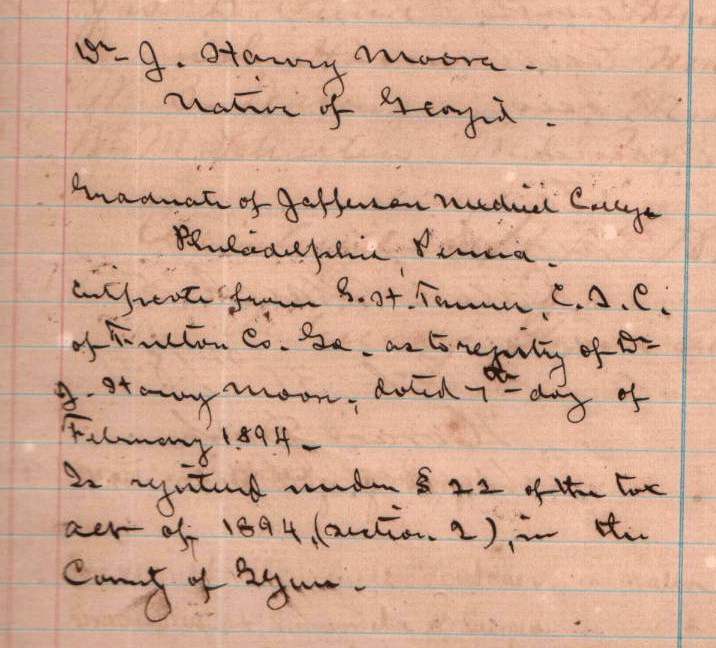 Dr J. Harvey Moore -
Native of Georgia.
Graduate of Jefferson Medical College
Philadelphia, Penna.
Certificate from G. H. Tanner, C. S. C.
of Fulton Co. Ga. as to registry of Dr
J. Harvey Moore, dated 7th day of
February 1894.
Is registered under § 22 of the tax
act of 1894, (section 2), in the
County of Glynn.